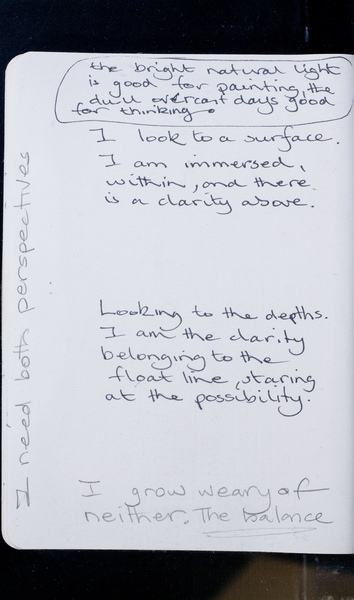 the bright natural light
is good for painting, the
dull overcast days good
for thinking.
I look to a surface.
I am immersed,
within, and there
is a clarity above.
Looking to the depths.
I am the clarity
belonging to the
float line, staring
at the possibility.
I grow weary of
neither. The balance
I need both perspectives